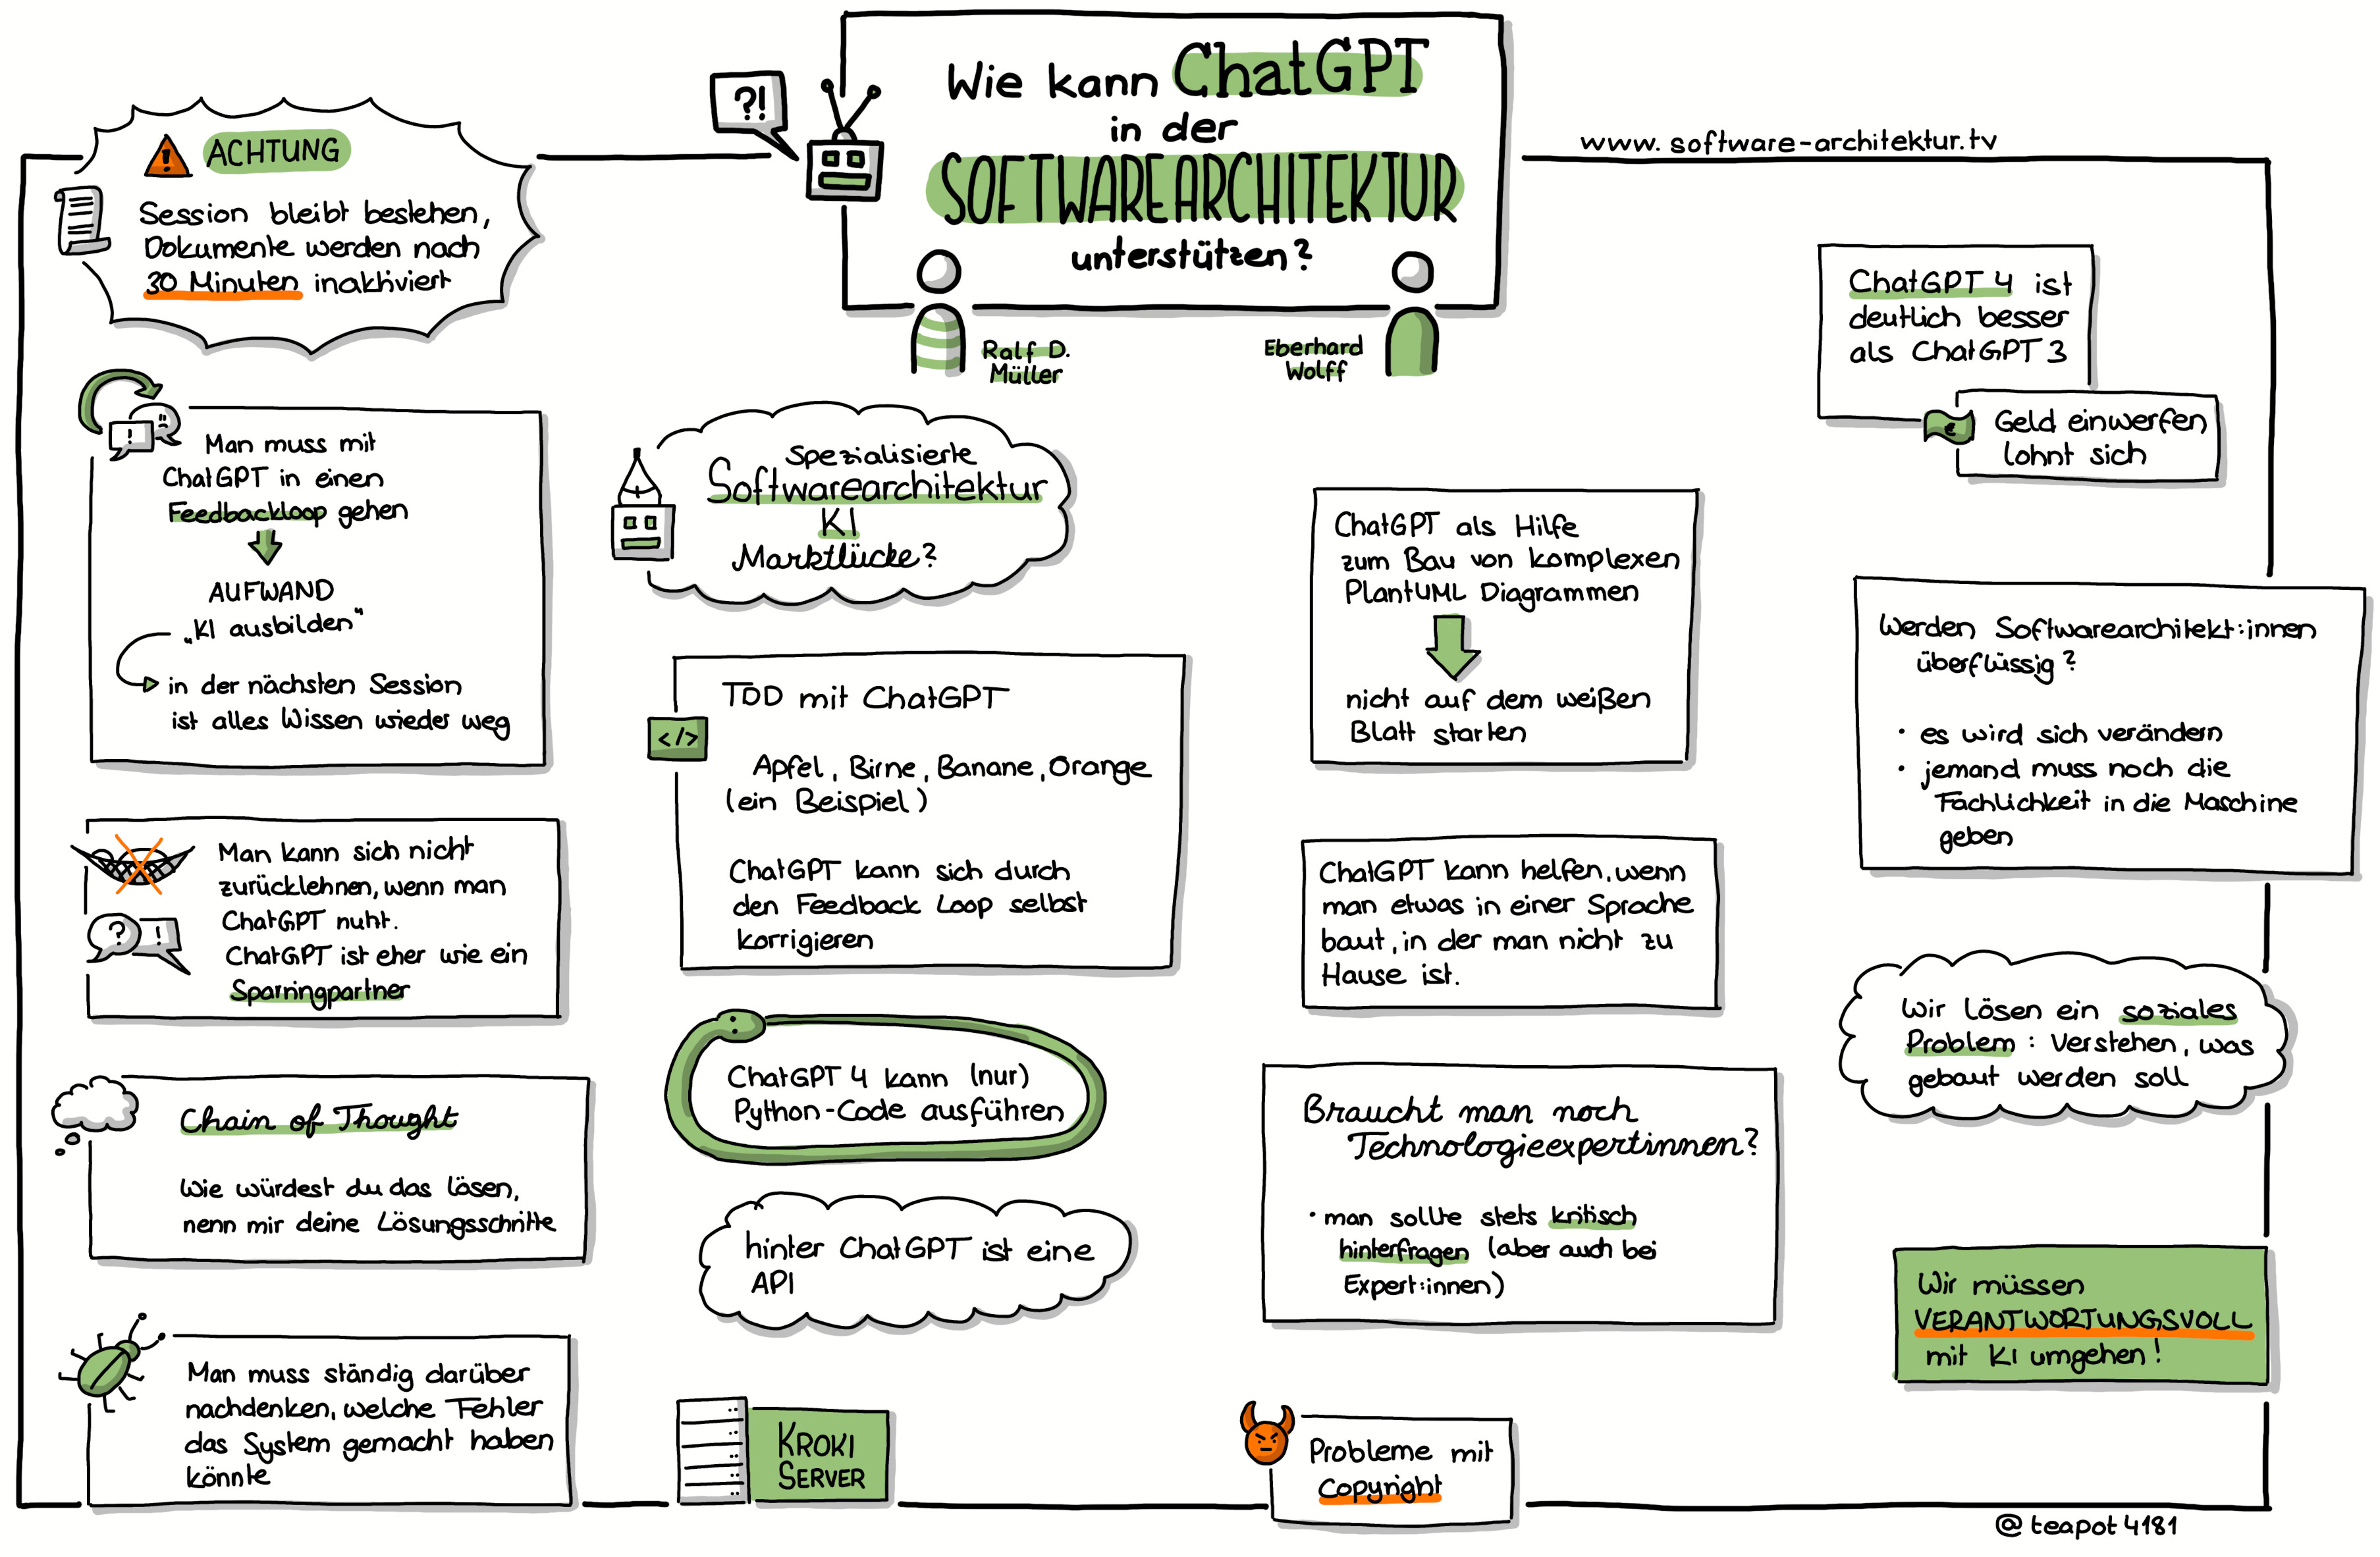 ?!
Wie kann ChatGPT
in der
SOFTWAREARCHITEKTUR
unterstützen?
Ralf D.
Müller
Eberhard
Wolff
www.software-architektur.tv
! ACHTUNG
Session bleibt bestehen,
Dokumente werden nach
30 Minuten inaktiviert
!
Man muss mit
ChatGPT in einen
Feedbackloop gehen
AUFWAND
„KI ausbilden“
in der nächsten Session
ist alles Wissen wieder weg
Man kann sich nicht
zurücklehnen, wenn man
ChatGPT nutzt.
ChatGPT ist eher wie ein
Sparringpartner
? !
Chain of Thought
Wie würdest du das lösen,
nenn mir deine Lösungsschritte
Man muss ständig darüber
nachdenken, welche Fehler
das System gemacht haben
könnte
Spezialisierte
Softwarearchitektur
KI
Marktlücke?
</>
TDD mit ChatGPT
Apfel, Birne, Banane, Orange
(ein Beispiel)
ChatGPT kann sich durch
den Feedback Loop selbst
korrigieren
ChatGPT 4 kann (nur)
Python-Code ausführen
hinter ChatGPT ist eine
API
KROKI
SERVER
ChatGPT als Hilfe
zum Bau von komplexen
PlantUML Diagrammen
nicht auf dem weißen
Blatt starten
ChatGPT kann helfen, wenn
man etwas in einer Sprache
baut, in der man nicht zu
Hause ist.
Braucht man noch
Technologieexpertinnen?
• man sollte stets kritisch
hinterfragen (aber auch bei
Expert:innen)
Probleme mit
Copyright
ChatGPT 4 ist
deutlich besser
als ChatGPT 3
€
Geld einwerfen
lohnt sich
Werden Softwarearchitekt:innen
überflüssig?
• es wird sich verändern
• jemand muss noch die
Fachlichkeit in die Maschine
geben
Wir lösen ein soziales
Problem: Verstehen, was
gebaut werden soll
Wir müssen
VERANTWORTUNGSVOLL
mit KI umgehen!
@teapot4181